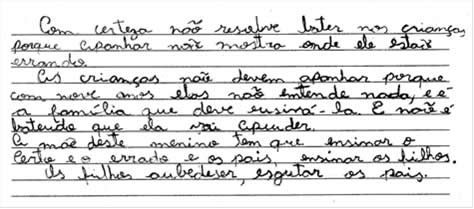 Com certeza não resolve bater nas crianças
porque apanhar não mostra onde ele estais
errando.
As crianças não devem apanhar porque
com nove anos elas não entende nada, e é
a família que deve ensiná-la. E não é
batendo que ela vai aprender.
A mãe deste menino tem que ensinar o
certo e o errado e os pais, ensinar os filhos.
Os filhos aubedeser, esgutar os pais.